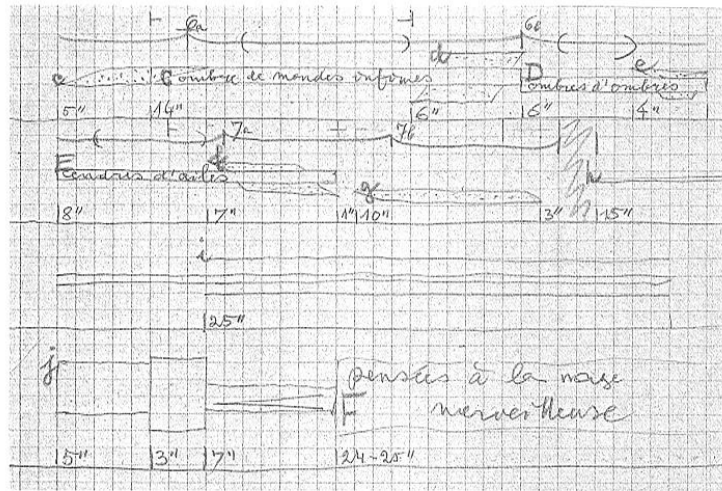 6a 6b
d
c C ombre de mondes infomes D ombres d'ombres e
5" 14" 6" 6" 4"
7a 7b
E cendres d'ailes g h
8" 7" 1" 10" 3" 15"
i
25"
j pensées à la
F merveilleuse
5" 3" 7" 24-25"